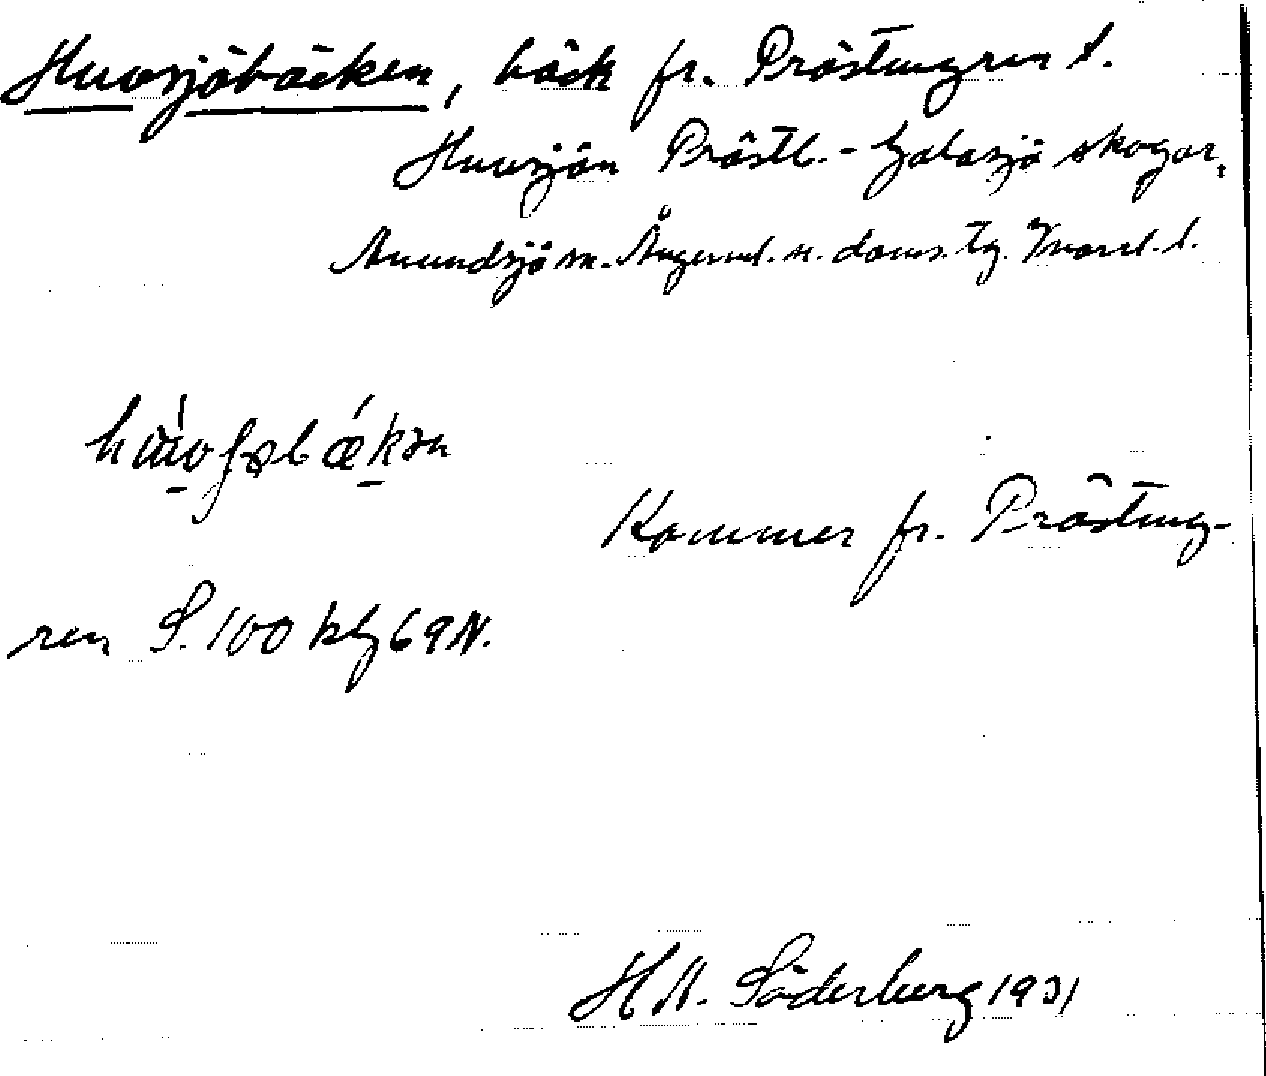 Huvsjöbäcken, bäck fr. Prästtungren t.
Huvsjön Prästb. - Galasjö skogar,
Anundsjö sn. Ångerml. n. doms. tg. Vnorrl. l.
Kommer fr. Prästtung-
ren S. 100 klg 69 N.
H N. Söderberg 1931